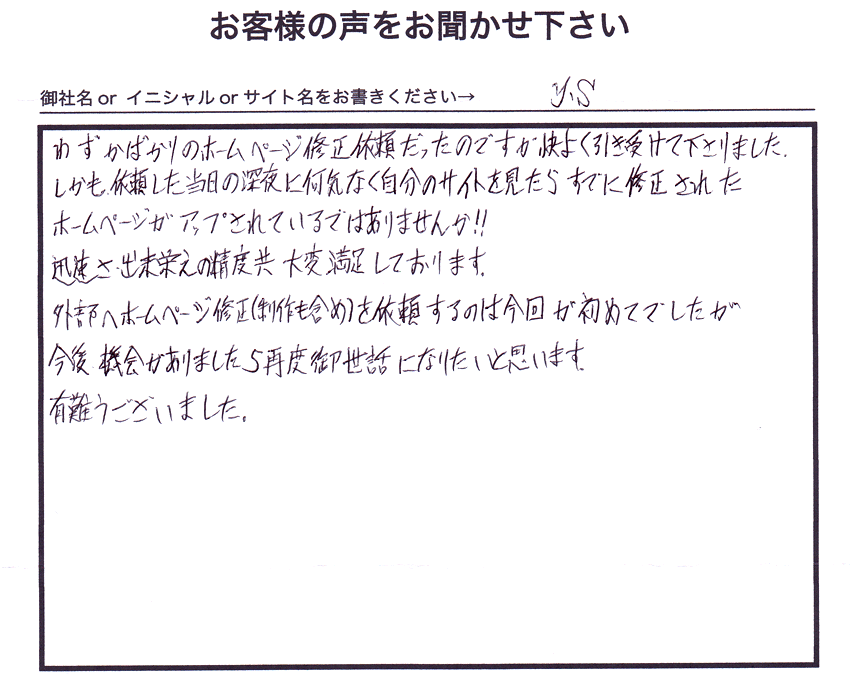 お客様の声をお聞かせ下さい
御社名 or イニシャル or サイト名をお書きください→ Y.S
わずかばかりのホームページ修正依頼だったのですが快よく引き受けて下さりました.
しかも依頼した当日の深夜に何気なく自分のサイトを見たらすでに修正された
ホームページがアップされているではありませんか!!
迅速さ出来栄えの精度共大変満足しております.
外部へホームページ修正(制作も含め)を依頼するのは今回が初めてでしたが
今後機会がありましたら再度御世話になりたいと思います.
有難うございました.